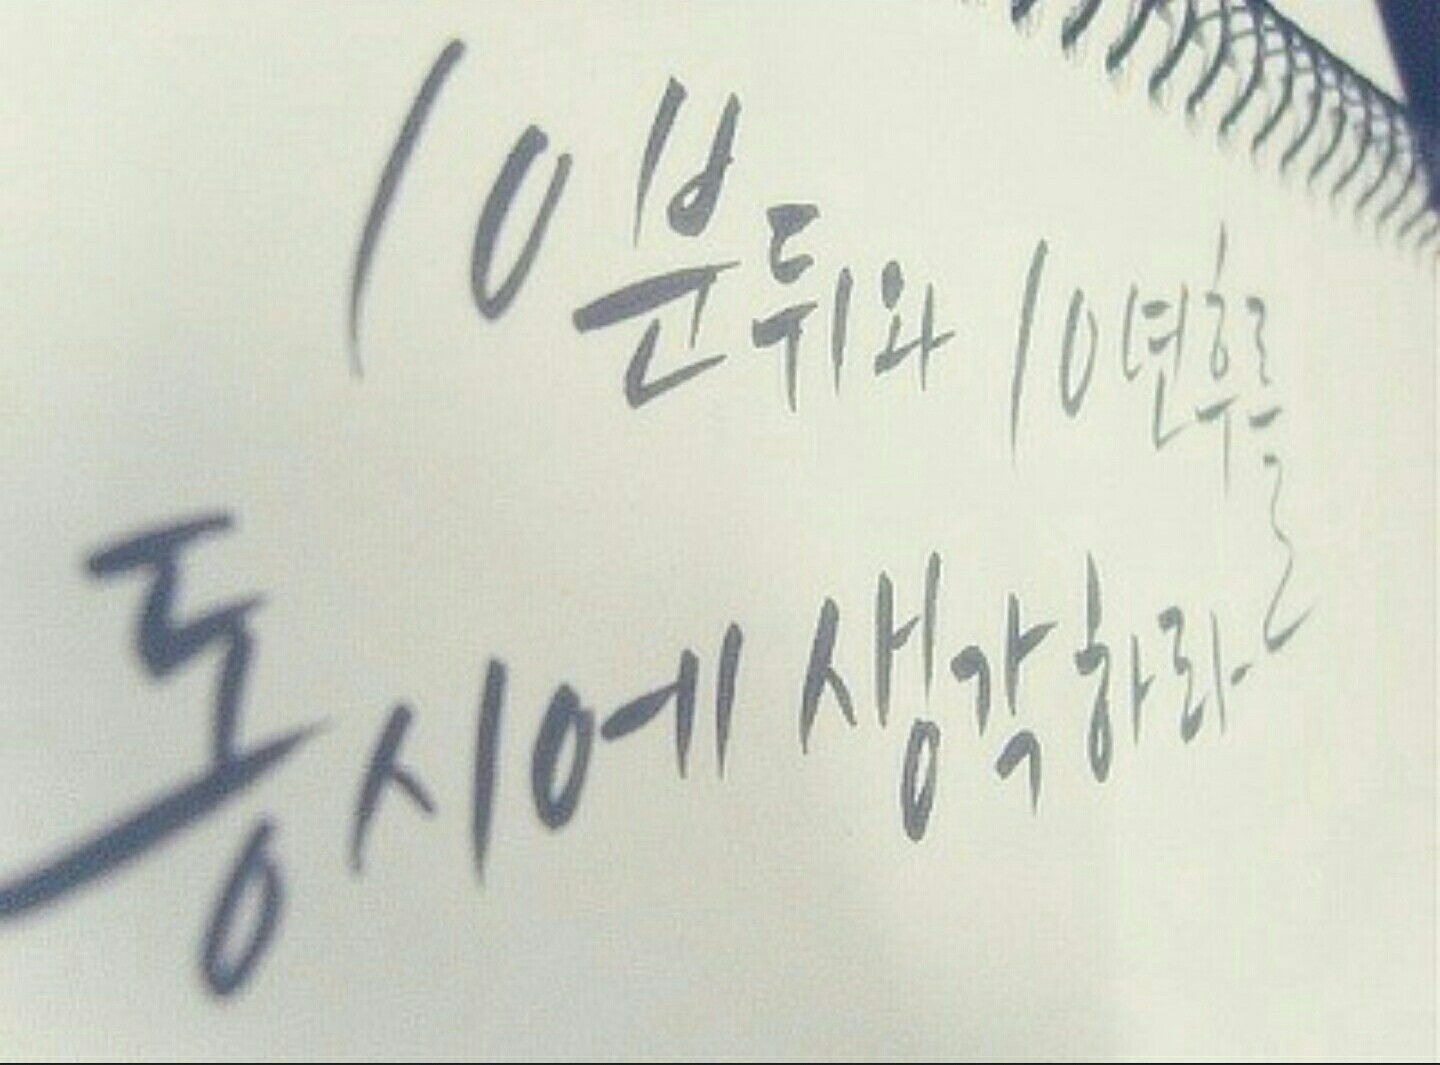 10분 뒤와 10년 후를
동시에 생각하라.